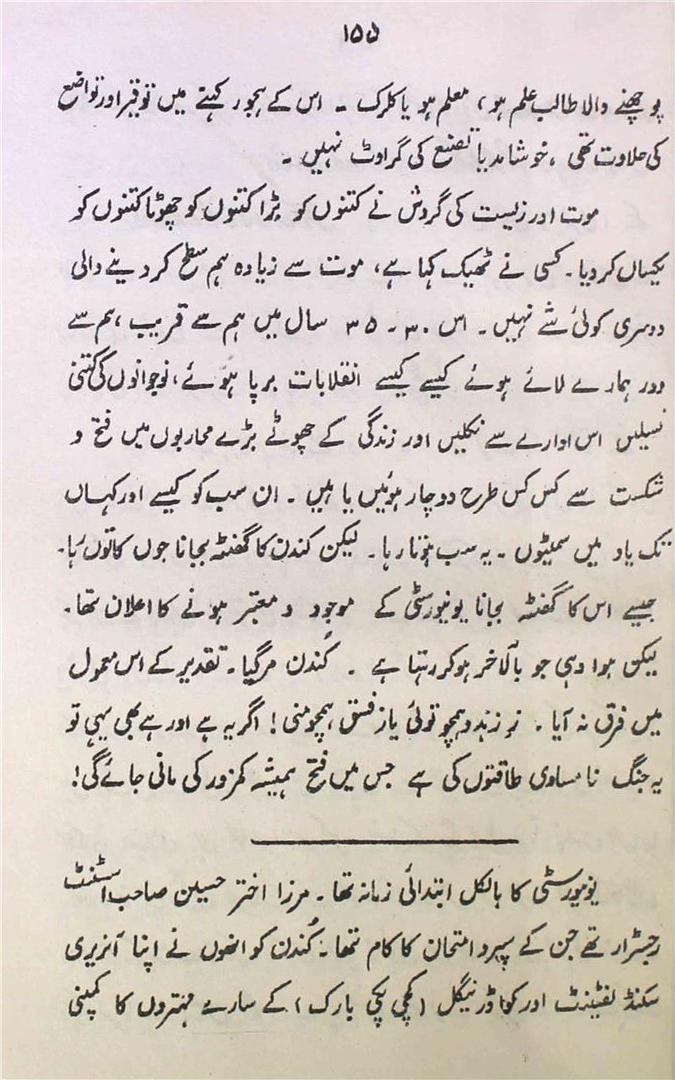 ۱۵۵
پوچھنے والا طالب علم ہو، معلم ہو یا کلرک ۔ اس کے ہجور کہنے میں توقیر اور تواضع
کی حلاوت تھی، خوشامد یا تصنع کی گراوٹ نہیں ۔
موت اور زیست کی گردش نے کتنوں کو بڑا کتنوں کو چھوٹا کتنوں کو
یکساں کر دیا ۔ کسی نے ٹھیک کہا ہے، موت سے زیادہ ہم سطح کر دینے والی
دوسری کوئی شے نہیں ۔ اس ۳۰ ۔ ۳۵ سال میں ہم سے قریب، ہم سے
دور ہمارے لائے ہوئے کیسے کیسے انقلابات برپا ہوئے، نوجوانوں کی کتنی
نسیلیں اس ادارے سے نکلیں اور زندگی کے چھوٹے بڑے محاربوں میں فتح و
شکست سے کس کس طرح دوچار ہوئیں یا ہیں ۔ ان سب کو کیسے اور کہاں
تک یاد میں سمیٹوں ۔ یہ سب ہوتا رہا ۔ لیکن کندن کا گھنٹہ بجانا جوں کا توں رہا ۔
جیسے اس کا گھنٹہ بجانا یونیورسٹی کے موجود و معتبر ہونے کا اعلان تھا ۔
لیکن ہوا وہی جو بالآخر ہو کر رہتا ہے ۔ کُندن مر گیا ۔ تقدیر کے اس معمول
میں فرق نہ آیا ۔ ز زہد ہمچو توئی یاز فسق ہمچو منی! اگر یہ ہے اور ہے بھی یہی تو
یہ جنگ نا مساوی طاقتوں کی ہے جس میں فتح ہمیشہ کمزور کی مانی جائے گی!
یونیورسٹی کا بالکل ابتدائی زمانہ تھا ۔ مرزا اختر حسین صاحب اسٹنٹ
رجسٹرار تھے جن کے سپرد امتحان کا کام تھا ۔ کُندن کو انھوں نے اپنا آنریری
سکنڈ لفٹیننٹ اور کواڈرنیگل (کچی پکی بارک) کے سارے مہتروں کا کمپنی